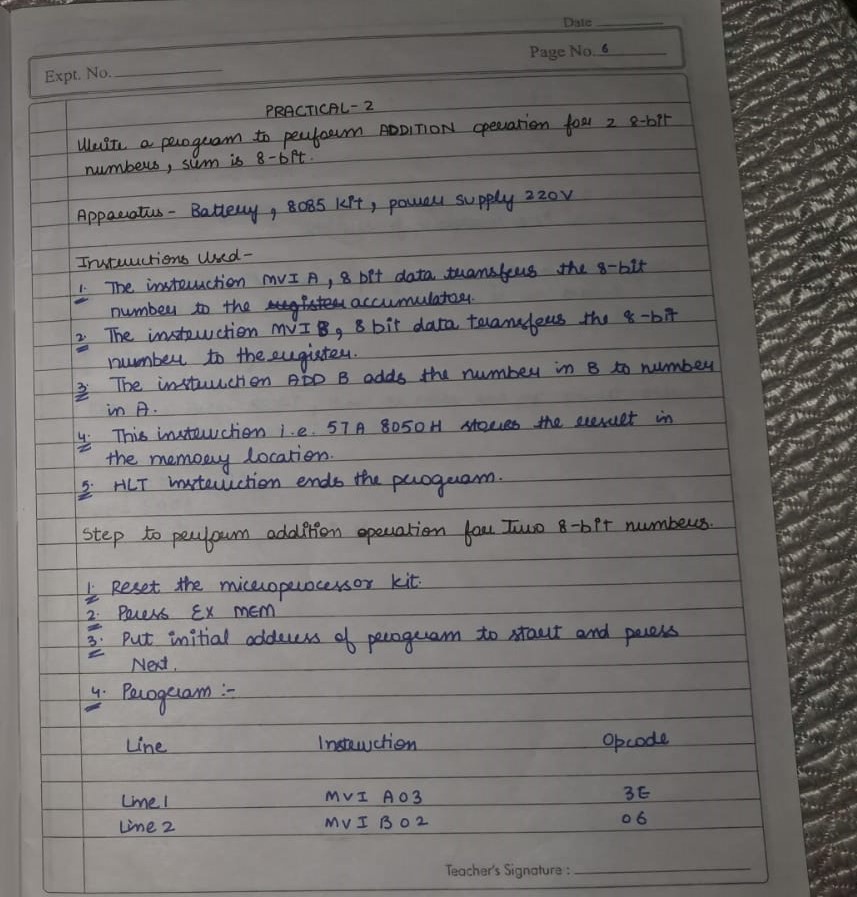 Date
Expt. No.
Page No. 6
PRACTICAL-2
Write a program to perform ADDITION operation for 2 8-bit
numbers, sum is 8-bit.
Apparatus - Battery, 8085 kit, power supply 220V
Instructions Used-
1. The instruction MVI A, 8 bit data transfers the 8-bit
number to the register accumulator.
2. The instruction MVI B, 8 bit data transfers the 8-bit
number to the register.
3. The instruction ADD B adds the number in B to number
in A.
4. This instruction i.e. STA 8050H stores the result in
the memory location.
5. HLT instruction ends the program.
Step to perform addition operation for Two 8-bit numbers.
1. Reset the microprocessor kit.
2. Press EX MEM
3. Put initial address of program to start and press
Next.
4. Program :-
Line Instruction Opcode
Line 1 MVI A 03 3E
Line 2 MVI B 02 06
Teacher's Signature :